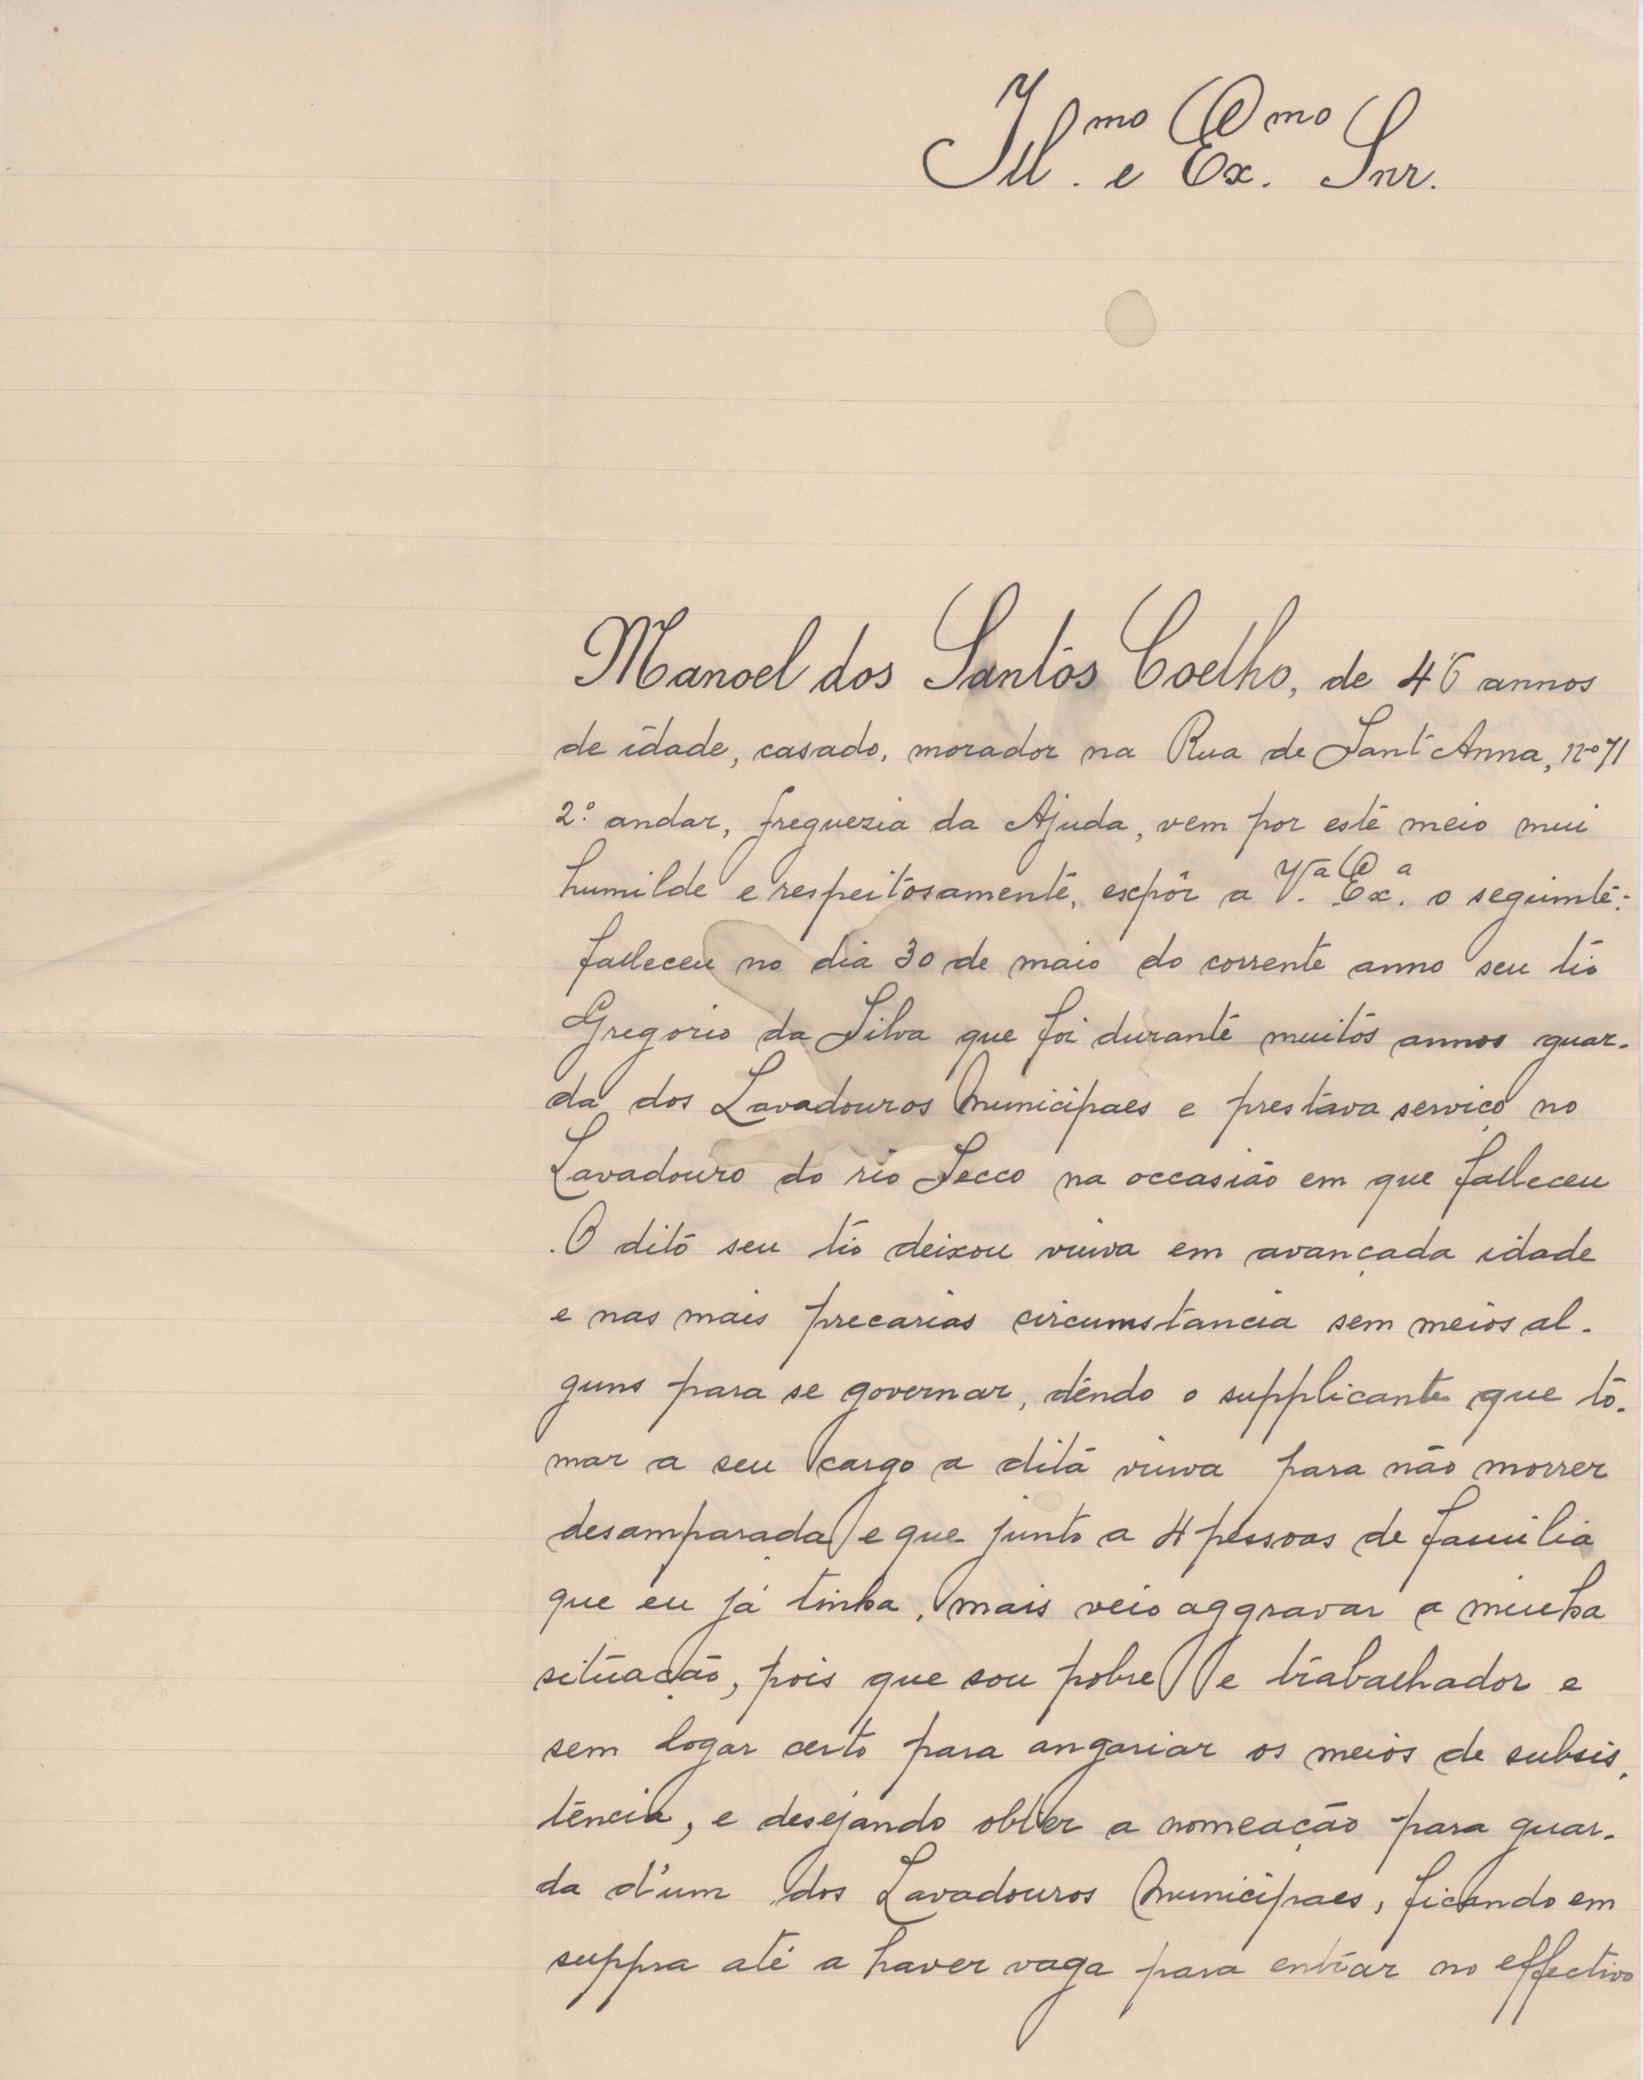 Ill.mo e Ex.mo Snr.
Manoel dos Santos Coelho, de 46 annos
de idade, casado, morador na Rua de Sant'Anna, nº 71
2º andar, freguezia da Ajuda, vem por este meio mui
humilde e respeitosamente, expôr a V.ª Ex.ª o seguinte:
falleceu no dia 30 de maio do corrente anno seu tio
Gregorio da Silva que foi durante muitos annos guar-
da dos Lavadouros Municipaes e prestava serviço no
Lavadouro do rio Secco na occasião em que falleceu
. O dito seu tio deixou viuva em avançada idade
e nas mais precarias circumstancia sem meios al-
guns para se governar, tendo o supplicante que to-
mar a seu cargo a dita viuva para não morrer
desamparada e que junto a 4 pessoas de familia
que eu já tinha, mais veio aggravar a minha
situação, pois que sou pobre e trabalhador e
sem logar certo para angariar os meios de subsis-
tencia, e desejando obter a nomeação para guar-
da d'um dos Lavadouros Municipaes, ficando em
suppra até a haver vaga para entrar no effectivo